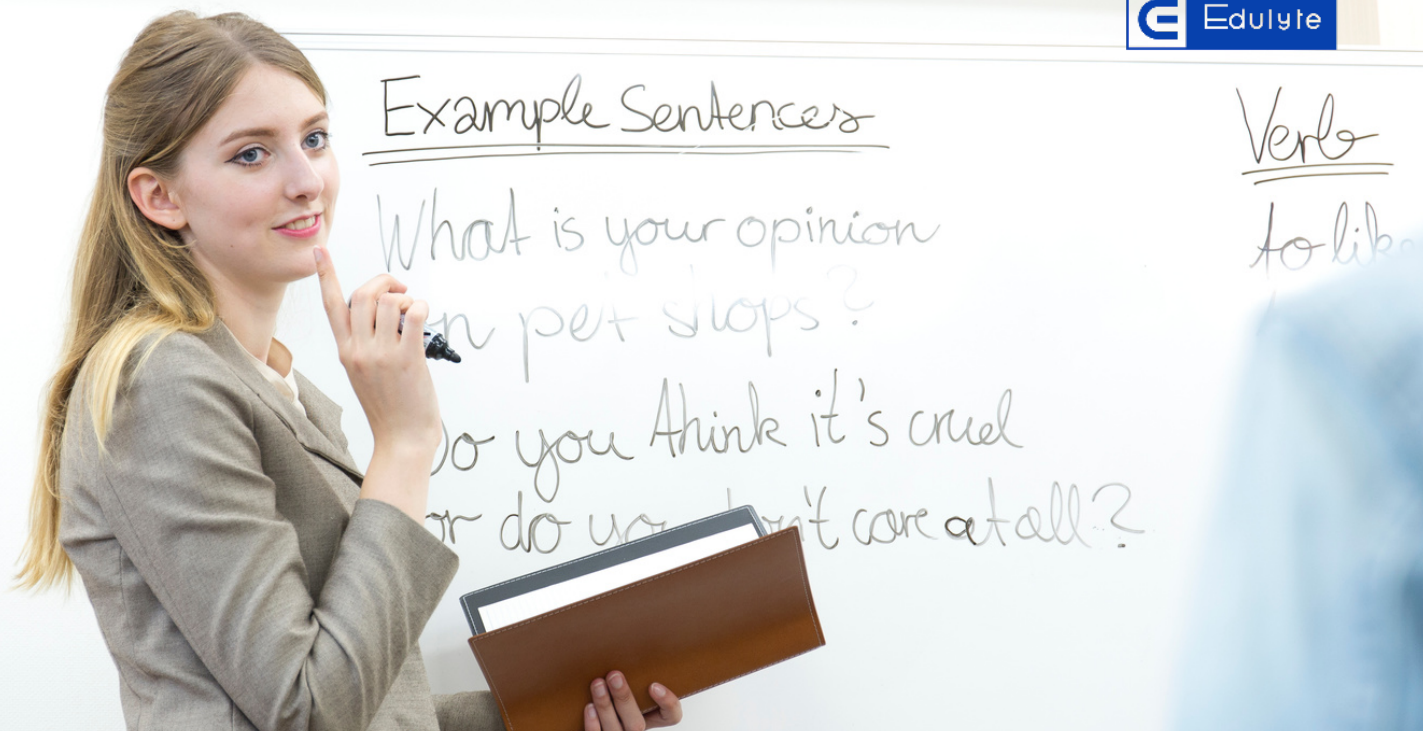 Edulyte
Example Sentences
What is your opinion
on pet shops?
Do you think it's cruel
or do you don't care at all?
Verb
to like